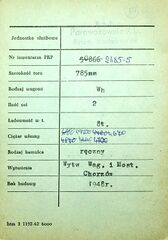 Jednostka służbowa
Nr inwentarza PKP 50866 2485-5
Szerokość toru 785mm
Rodzaj wagonu Wh
Ilość osi 2
Ładowność w t. 8t.
Ciężar własny
Rodzaj hamulca ręczny
Wytwórnia Wytw Wag. i Most.
Chorzów
Rok budowy 1948r.